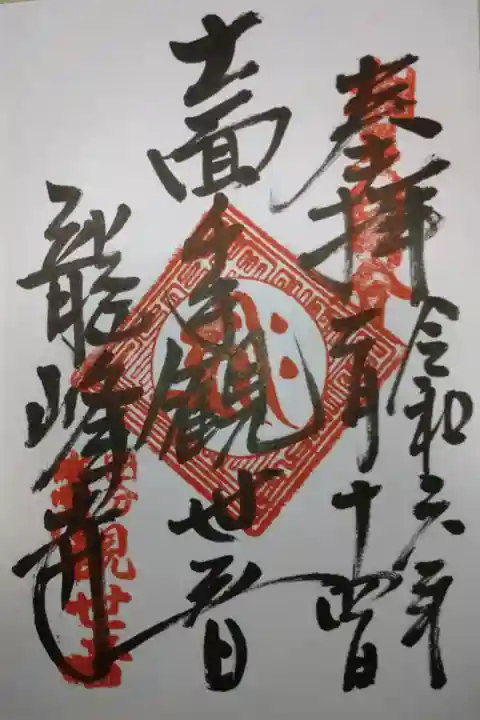 令和六年
奉拝
二月十四日
十一面千手観世音
龍峰寺
観世音